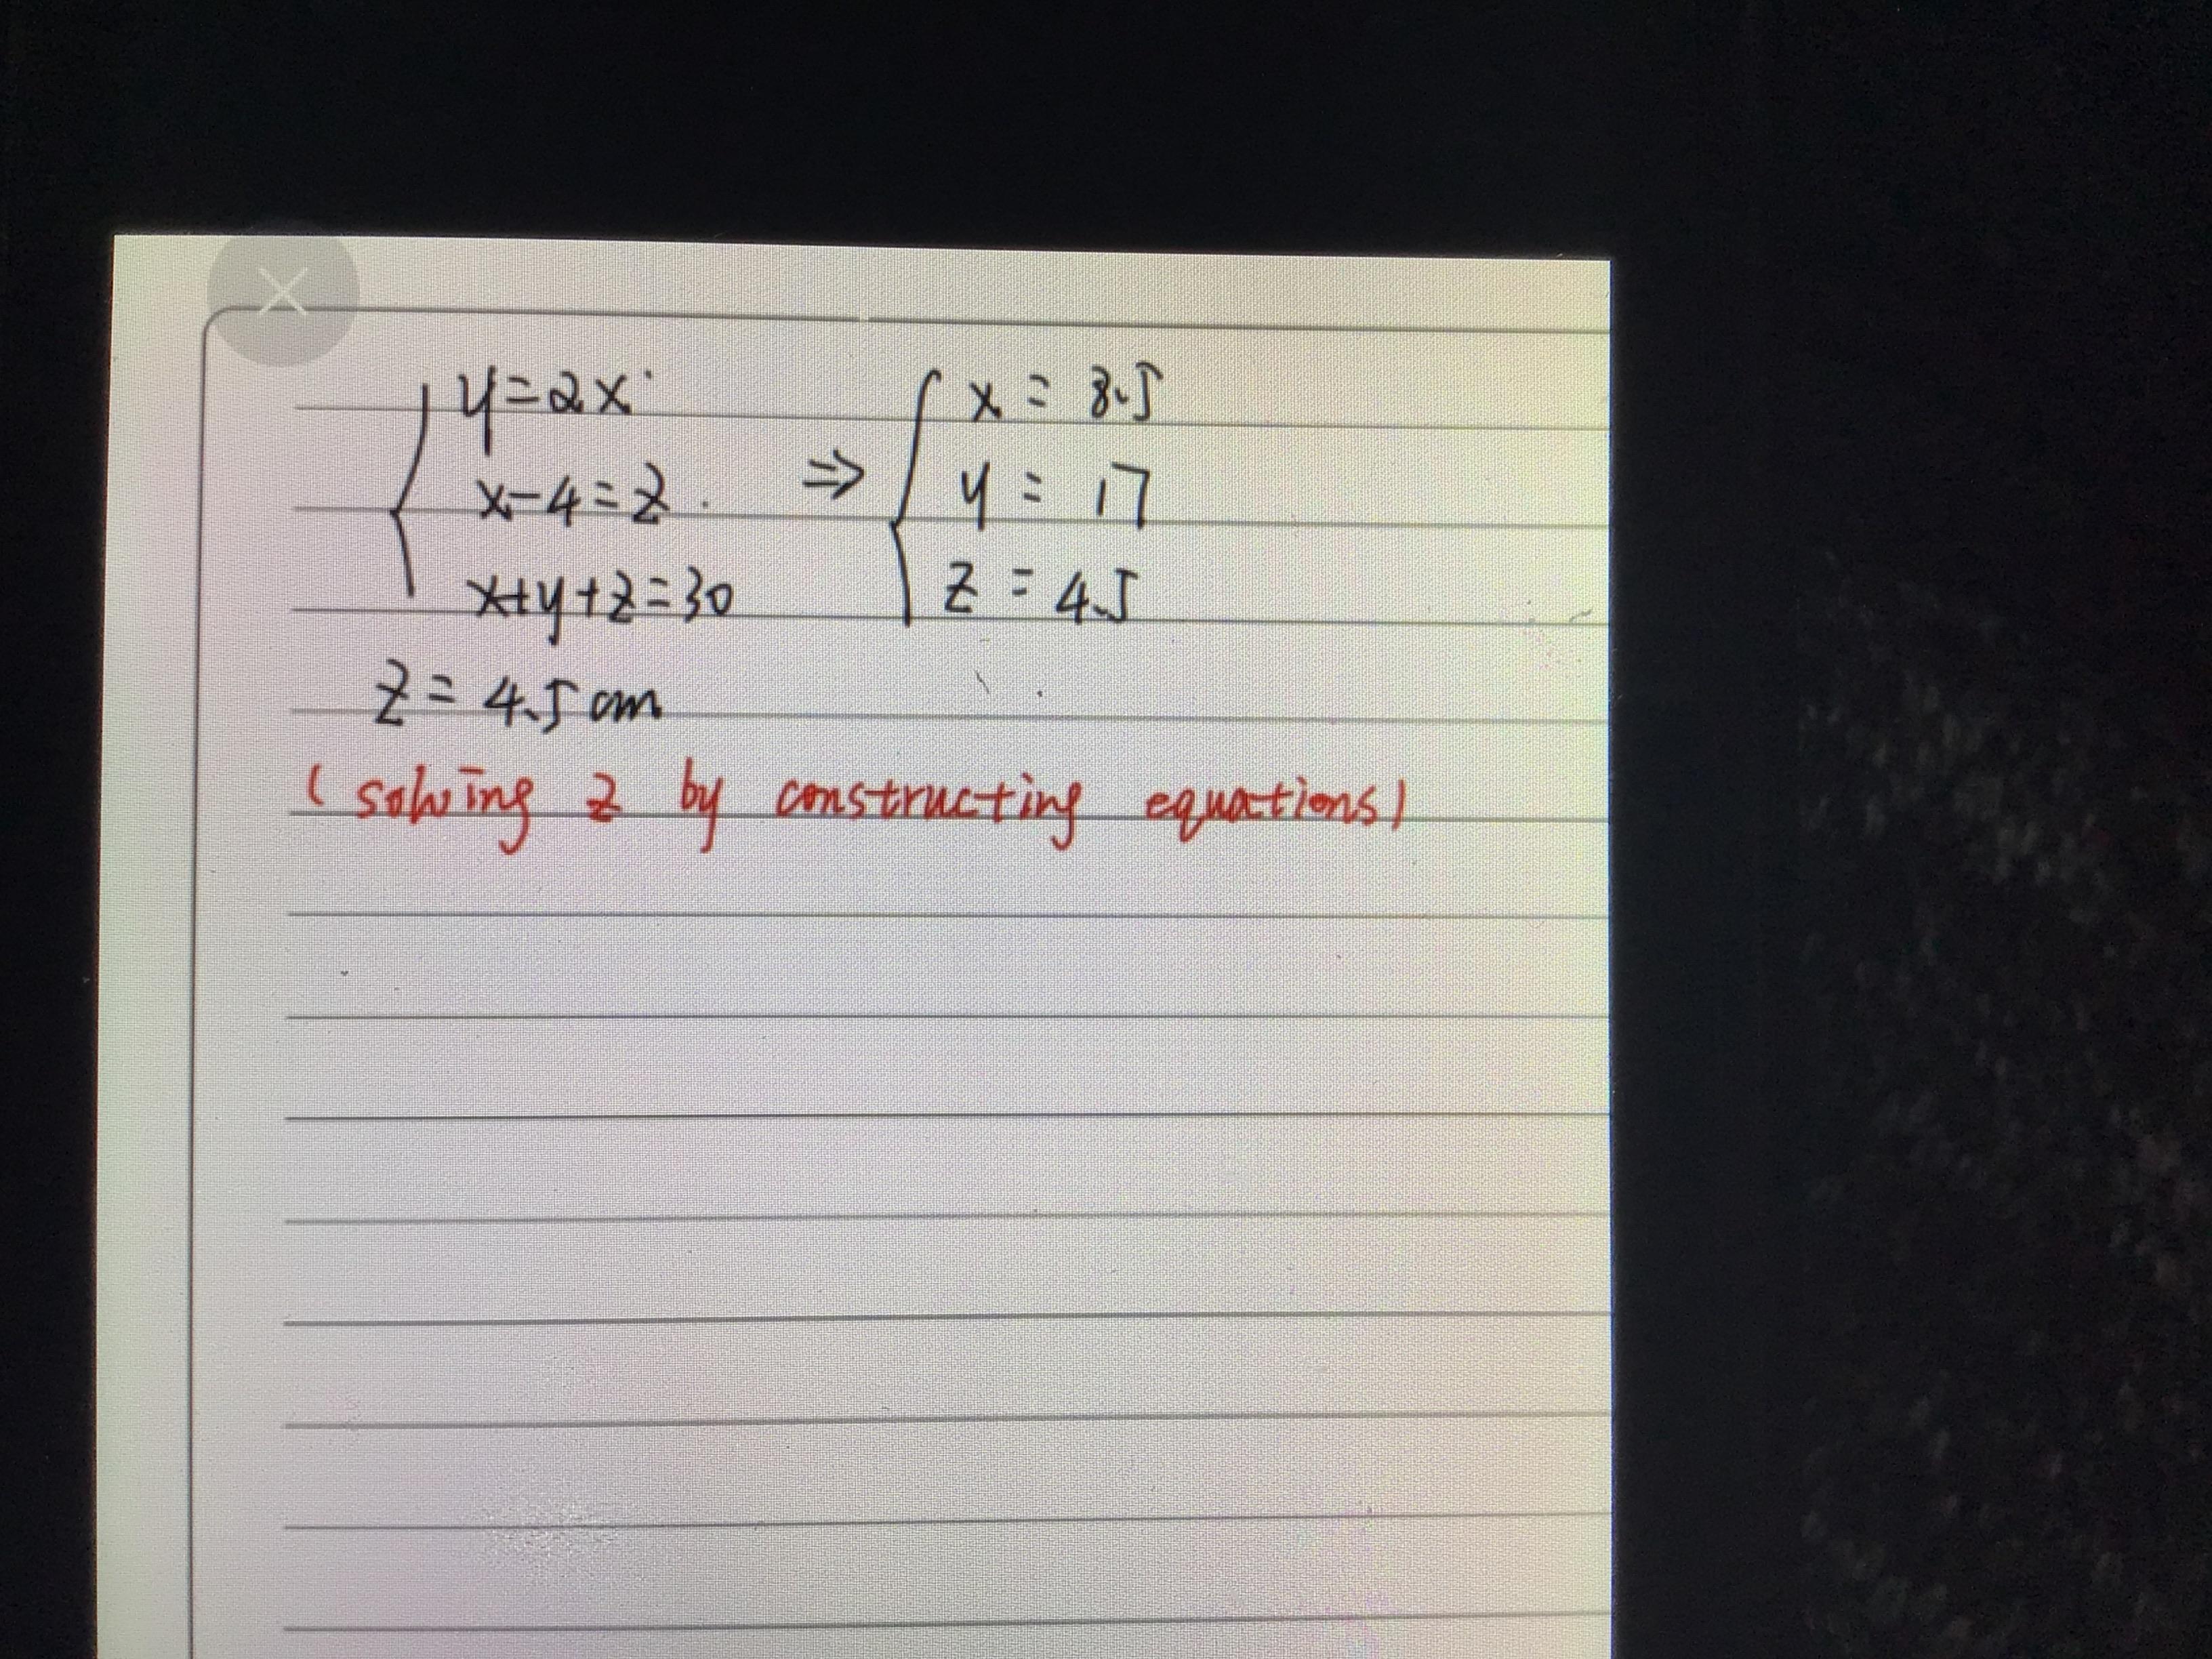 y=2x
x-4=z.
x+y+z=30
⇒
x = 8.5
y = 17
z = 4.5
z = 4.5 cm
(solving z by constructing equations)